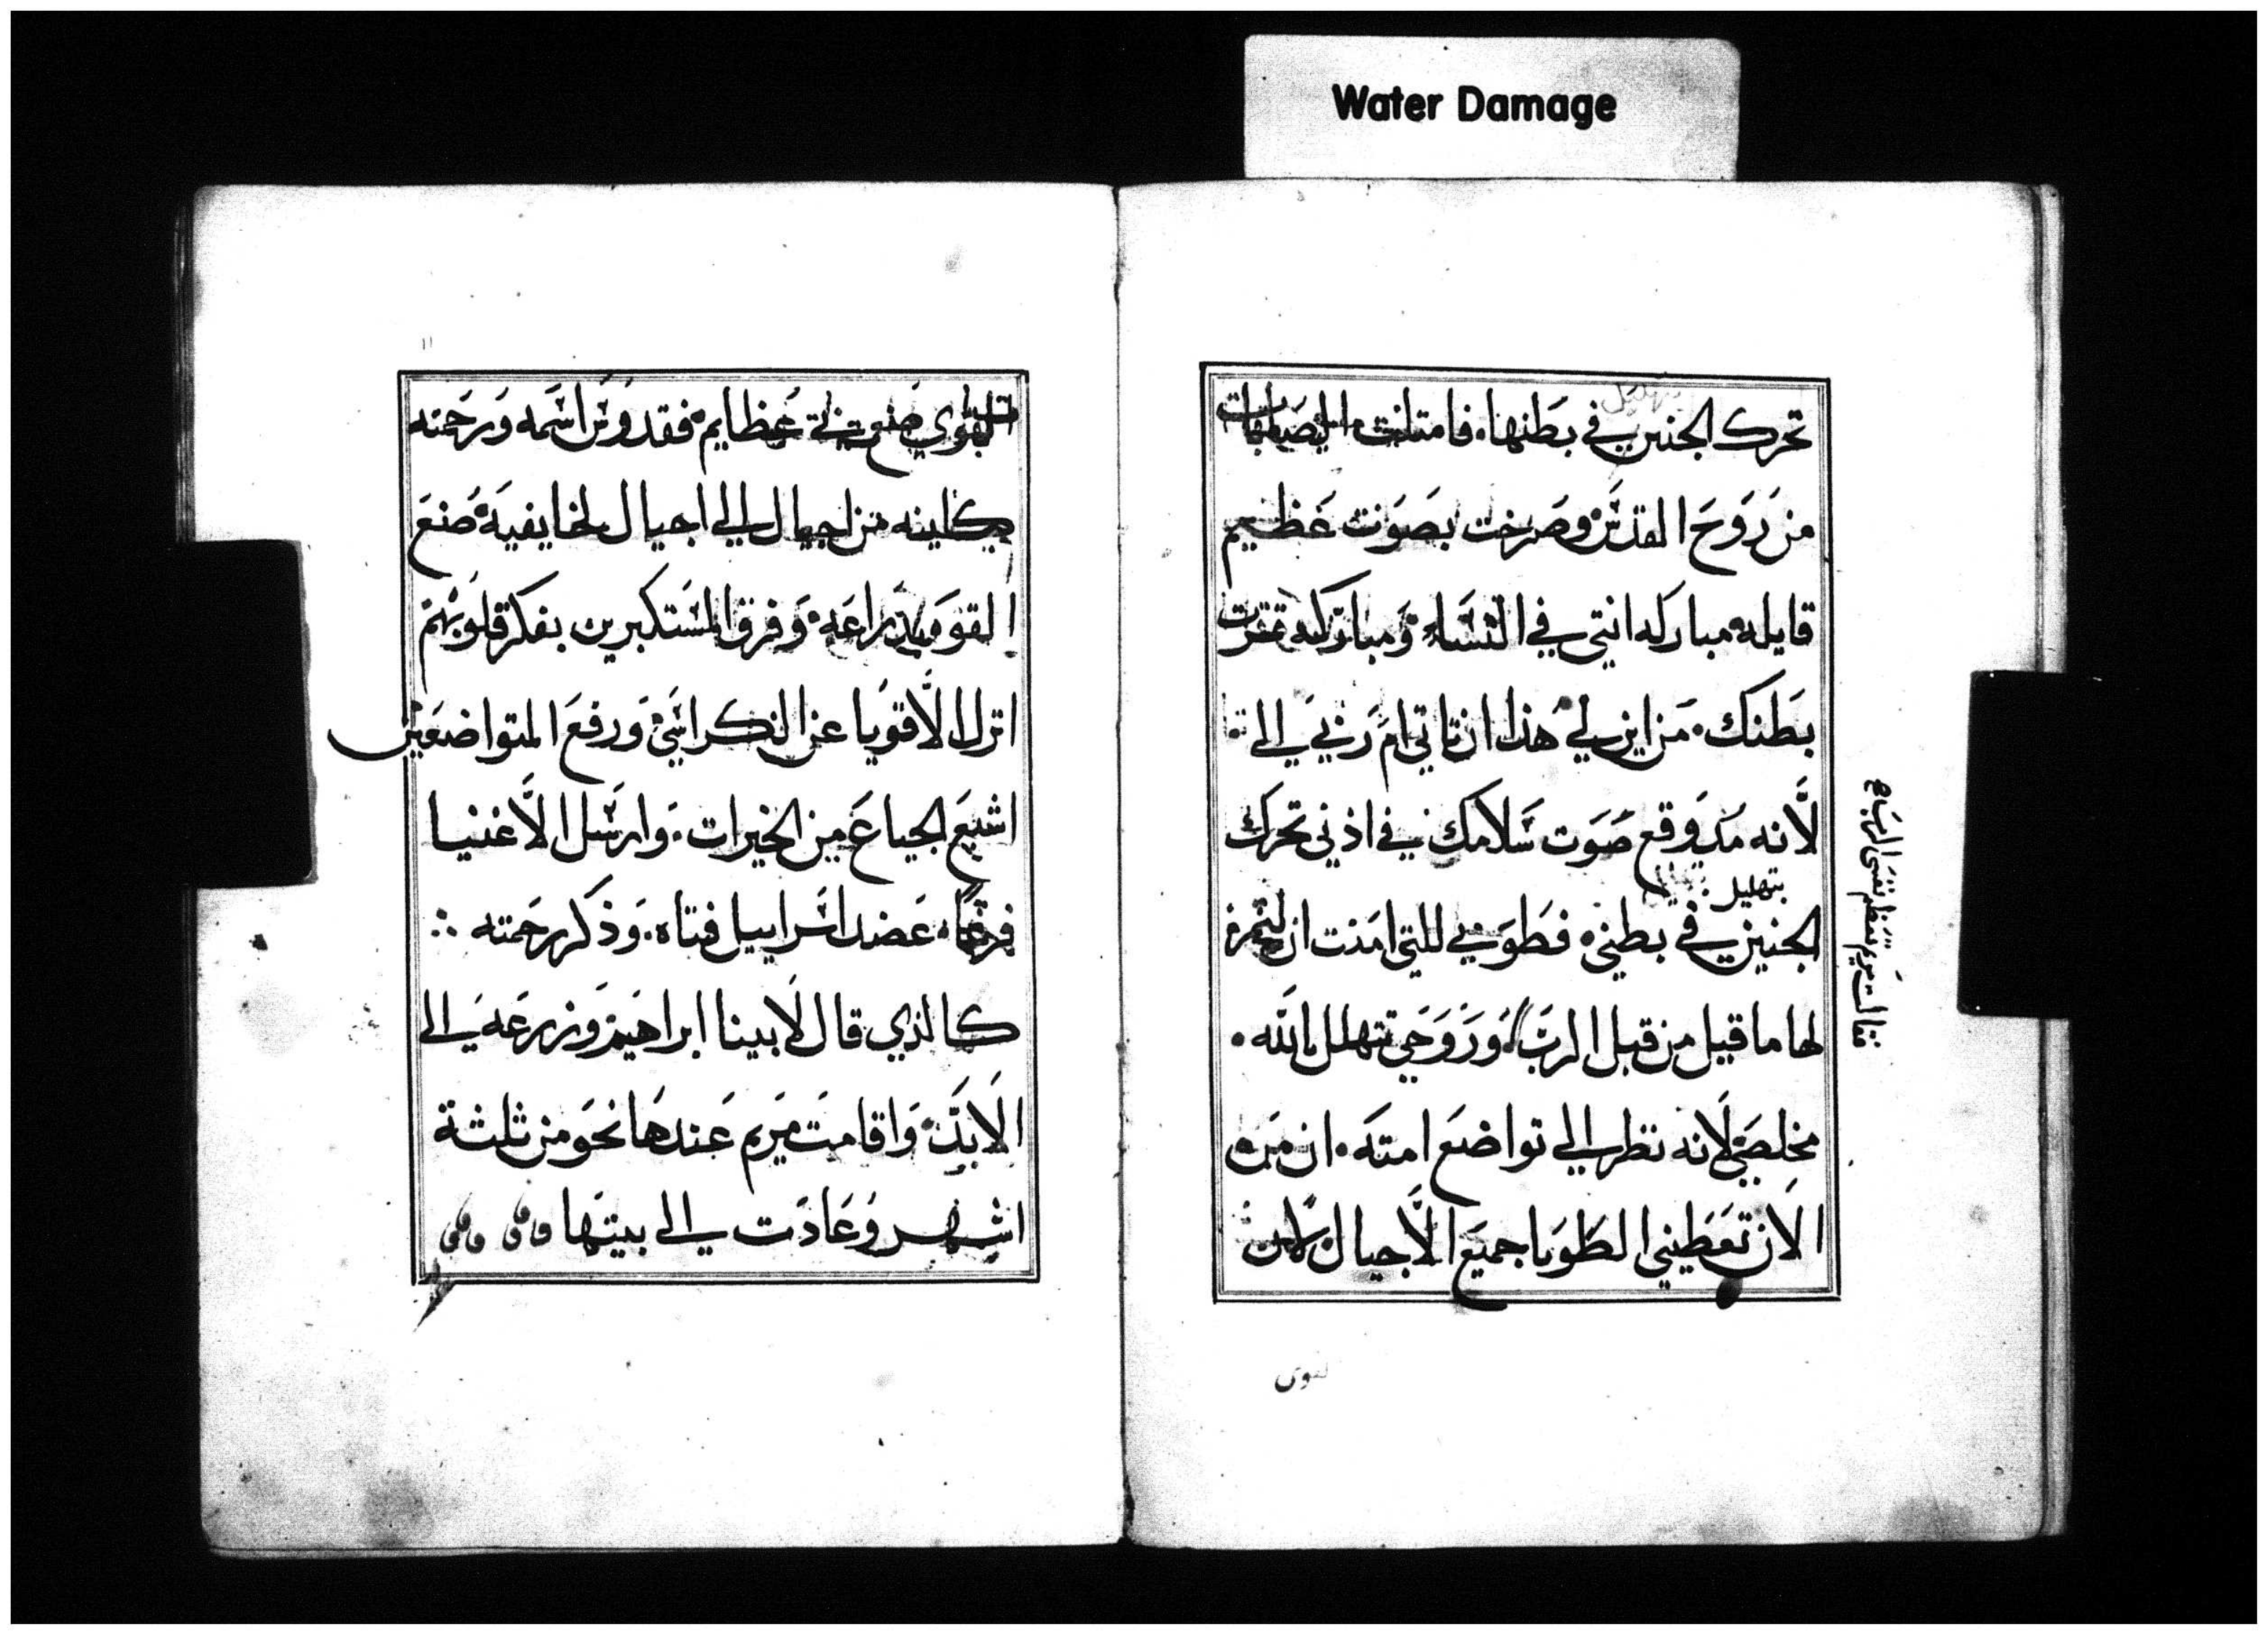 Water Damage
تحرك الجنين في بطنها. فامتلت اليصابات
من روح القدس وصرخت بصوت عظيم
قايله مباركه انتي في النساء. ومباركه تمرت
بطنك. من اين لي هذا ان تاتي ام ربي الي
لأنه مذ وقع صوت سلامك في اذني تحرك
بتهليل
الجنين في بطني. فطوبي للتي امنت ان
لها ما قيل من قبل الرب وروحي تتهلل بالله.
مخلصي لانه نظر الي تواضع امته. ان من
الان تعطيني الطوبا جميع الأجيال لان
فقالت مريم تعظم نفسي الرب
القوي صنع بي عظايم. فقدوس اسمه ورحمته
كاينه من اجيال الي اجيال لخايفيه. صنع
القوه بذراعه. وفرق المستكبرين بفكر قلوبهم
انزل الأقويا عن الكراسي. ورفع المتواضعين
اشبع الجياع من الخيرات. وارسل الأغنيا
فرغا. عضد اسراييل فتاه. وذكر رحمته
كالذي قال لابينا ابراهيم وزرعه الي
الابد. واقامت مريم عندها نحو من ثلثة
اشهر وعادت الي بيتها